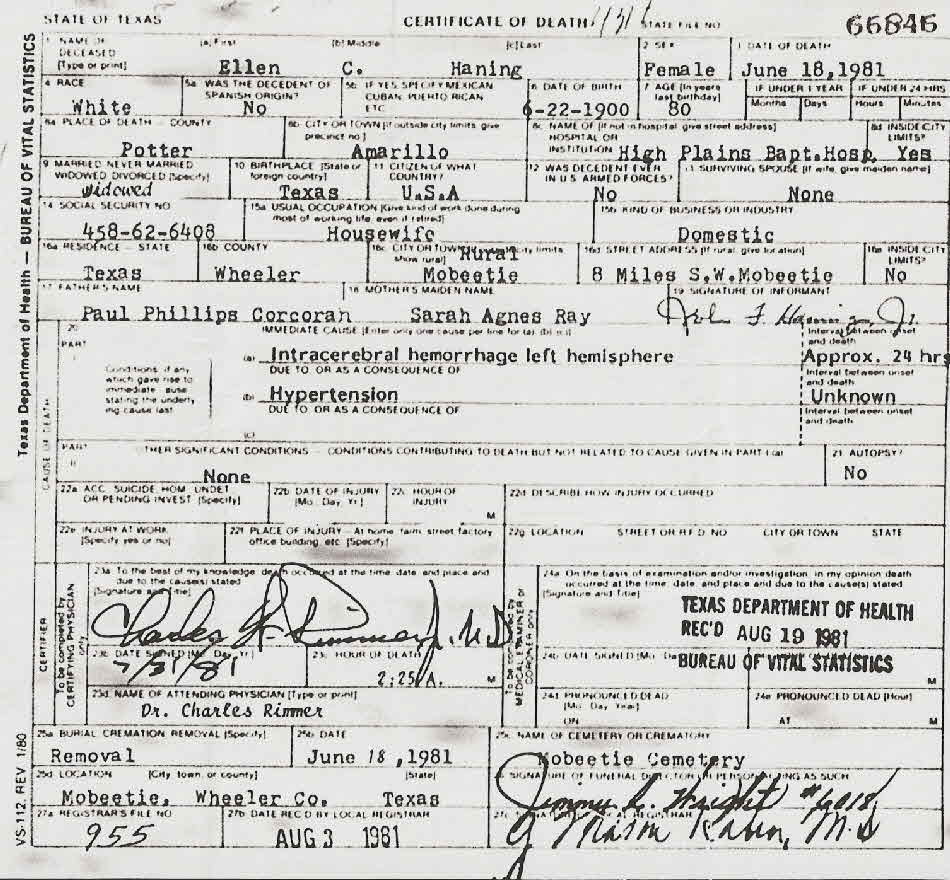 STATE OF TEXAS CERTIFICATE OF DEATH STATE FILE NO 66846
Texas Department of Health — BUREAU OF VITAL STATISTICS
1 NAME OF DECEASED [Type or print] (a) First (b) Middle (c) Last 2 SEX 3 DATE OF DEATH
Ellen C. Haning Female June 18,1981
4 RACE 5a WAS THE DECEDENT OF SPANISH ORIGIN? 5b IF YES SPECIFY MEXICAN CUBAN, PUERTO RICAN ETC 6 DATE OF BIRTH 7 AGE [In years last birthday] IF UNDER 1 YEAR IF UNDER 24 HRS
Months Days Hours Minutes
White No 6-22-1900 80
8a PLACE OF DEATH — COUNTY 8b CITY OR TOWN [If outside city limits, give precinct no.] 8c NAME OF [If not in hospital, give street address] HOSPITAL OR INSTITUTION 8d INSIDE CITY LIMITS?
Potter Amarillo High Plains Bapt.Hosp. Yes
9 MARRIED NEVER MARRIED WIDOWED DIVORCED [Specify] 10 BIRTHPLACE [State or foreign country] 11 CITIZEN OF WHAT COUNTRY? 12 WAS DECEDENT EVER IN U.S. ARMED FORCES? 13 SURVIVING SPOUSE [If wife, give maiden name]
Widowed Texas U.S.A No None
14 SOCIAL SECURITY NO 15a USUAL OCCUPATION [Give kind of work done during most of working life, even if retired] 15b KIND OF BUSINESS OR INDUSTRY
458-62-6408 Housewife Domestic
16a RESIDENCE — STATE 16b COUNTY 16c CITY OR TOWN show rural] 16d STREET ADDRESS [If rural give location] 16e INSIDE CITY LIMITS?
Texas Wheeler Rural Mobeetie 8 Miles S.W.Mobeetie No
17 FATHER'S NAME 18 MOTHER'S MAIDEN NAME 19 SIGNATURE OF INFORMANT
Paul Phillips Corcoran Sarah Agnes Ray John F. Haning, Jr.
20 PART I IMMEDIATE CAUSE [Enter only one cause per line for (a) (b) (c)] Interval between onset and death
(a) Intracerebral hemorrhage left hemisphere Approx. 24 hrs
Conditions, if any which gave rise to immediate cause stating the underlying cause last
DUE TO OR AS A CONSEQUENCE OF Interval between onset and death
(b) Hypertension Unknown
DUE TO OR AS A CONSEQUENCE OF Interval between onset and death
(c)
CAUSE OF DEATH
PART II OTHER SIGNIFICANT CONDITIONS — CONDITIONS CONTRIBUTING TO DEATH BUT NOT RELATED TO CAUSE GIVEN IN PART I (a) 21 AUTOPSY?
None No
22a ACC. SUICIDE, HOM. UNDET OR PENDING INVEST [Specify] 22b DATE OF INJURY [Mo., Day, Yr.] 22c HOUR OF INJURY M 22d DESCRIBE HOW INJURY OCCURRED
22e INJURY AT WORK [Specify yes or no] 22f PLACE OF INJURY — At home farm street factory office building, etc [Specify] 22g LOCATION STREET OR R.F.D. NO CITY OR TOWN STATE
CERTIFIER
To be completed by CERTIFYING PHYSICIAN only
23a To the best of my knowledge, death occurred at the time, date, and place and due to the cause(s) stated [Signature and Title]
Charles H. Rimmer Jr. M.D.
23b DATE SIGNED [Mo. Day, Yr.] 23c HOUR OF DEATH
7/31/81 2:25 A. M
23d NAME OF ATTENDING PHYSICIAN [Type or print]
Dr. Charles Rimmer
To be completed by MEDICAL EXAMINER or CORONER only
24a On the basis of examination and/or investigation, in my opinion death occurred at the time, date, and place and due to the cause(s) stated [Signature and Title]
TEXAS DEPARTMENT OF HEALTH
REC'D AUG 19 1981
BUREAU OF VITAL STATISTICS
24b DATE SIGNED [Mo. M
24d PRONOUNCED DEAD [Mo., Day, Year] 24e PRONOUNCED DEAD [Hour]
ON AT M
25a BURIAL CREMATION REMOVAL [Specify] 25b DATE 25c NAME OF CEMETERY OR CREMATORY
Removal June 18,1981 Mobeetie Cemetery
25d LOCATION [City, town, or county] [State] SIGNATURE OF FUNERAL DIRECTOR OR PERSON ACTING AS SUCH
Mobeetie, Wheeler Co. Texas Jimmy L. Wright #6018
27a REGISTRAR'S FILE NO 27b DATE REC'D BY LOCAL REGISTRAR 27c SIGNATURE OF LOCAL REGISTRAR
955 AUG 3 1981
VS-112, REV 1/80